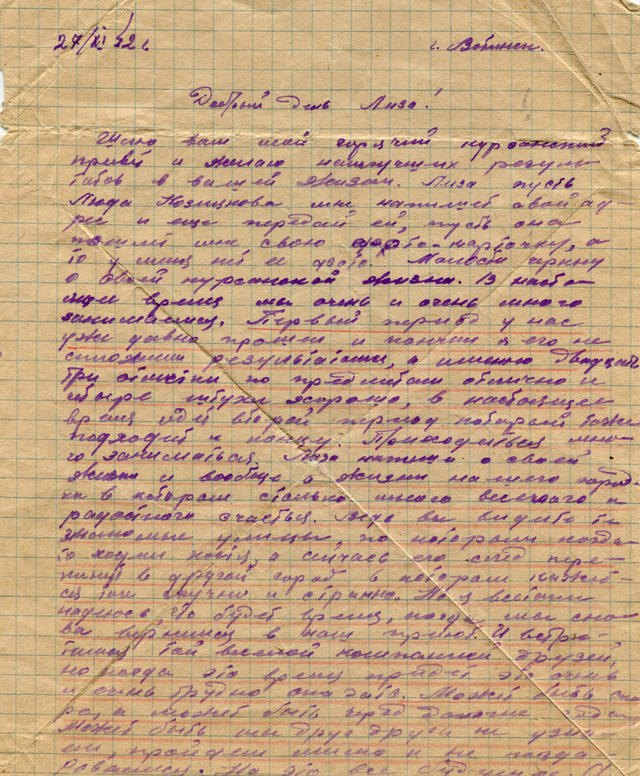 27/XI 52 г. г. Вольск.
Добрый день Лиза!
Шлю вам мой горячий курсантский
привет и желаю наилучших резуль
татов в вашей жизни. Лиза пусть
Люда мне напишет свой ад-
рес и еще передай ей, пусть она
мне свою фото-карточку, а
то у меня нет ее фото. Малость черкну
о своей курсантской жизни. В насто-
ящее время мы очень и очень много
занимаемся. Первый период у нас
уже давно прошел и кончил я его не
плохими результатами, а именно двадцать
три отметки по предметам отлично и
четыре штуки хорошо, в настоящее
время идет второй период который тоже
подходит к концу. Приходиться мно-
го заниматься. Лиза напиши о своей
жизни и вообще о жизни нашего город-
ка в котором столько много веселого и
радостного счастья. Ведь вы видите те
знакомые улицы, по которым когда-
то ходил я, а сейчас его след пере-
в другой город в котором кажет-
ся так скучно и странно. Но я
надеюсь что будет время, когда мы сно-
ва вернемся в наш приют. И встре-
тимся той веселой компанией друзей,
но когда это время придет это очень
и очень трудно сказать. Может быть ско
ро, а может быть пред
может быть мы друг друга не узна-
ем, пройдем мимо и не
Но это все